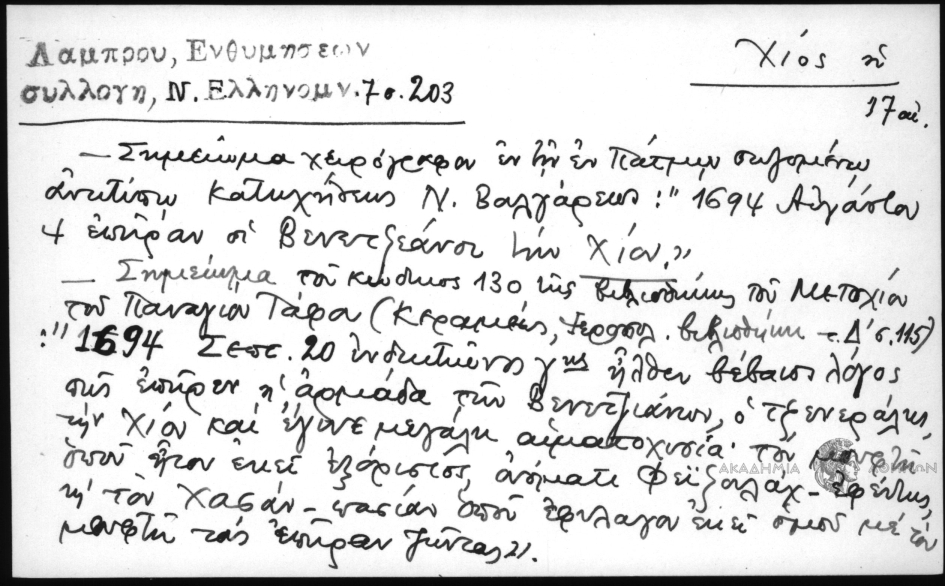 Λαμπρου, Ενθυμησεων
συλλογη, Ν. Ελληνομν. 7 σ. 203
Χίος ἡ
17 αἰ.
— Σημείωμα χειρόγραφον ἐν τῇ ἐν Πάτμῳ σωζομένῃ
ἀνατύπῳ Κατηχήσεως Ν. Βουλγάρεως: "1694 Αὐγούστου
4 ἐπῆραν οἱ Βενετζεάνοι τὴν Χίον."
— Σημείωμα τοῦ κώδικος 130 τῆς βιβλιοθήκης τοῦ Μετοχίου
τοῦ Παναγίου Τάφου (Κεραμεύς, Ἱεροσολ. βιβλιοθήκη Δ' σ. 115)
: "1694 Σεπτ. 20 ἰνδικτιῶνος γης ἦλθεν βέβαιος λόγος
πῶς ἐπῆρεν ἡ ἁρμάδα τῶν Βενετζιάνων, ὁ τζενεράλης
τὴν Χίον καὶ ἔγινε μεγάλη αἱματοχυσία· τὸν μουφτῆ
ὁποῦ ἦτον ἐκεῖ ἐξόριστος, ὀνόματι Φεϊζουλὰχ-ἐφέντης,
κι' τὸν Χασάν-πασιάν ὁποῦ ἐφύλαγον ἐκεῖ ὁμοῦ μὲ τὸν
μουφτῆ τοὺς ἐπῆραν ζῶντας".
ΑΚΑΔΗΜΙΑ ΑΘΗΝΩΝ